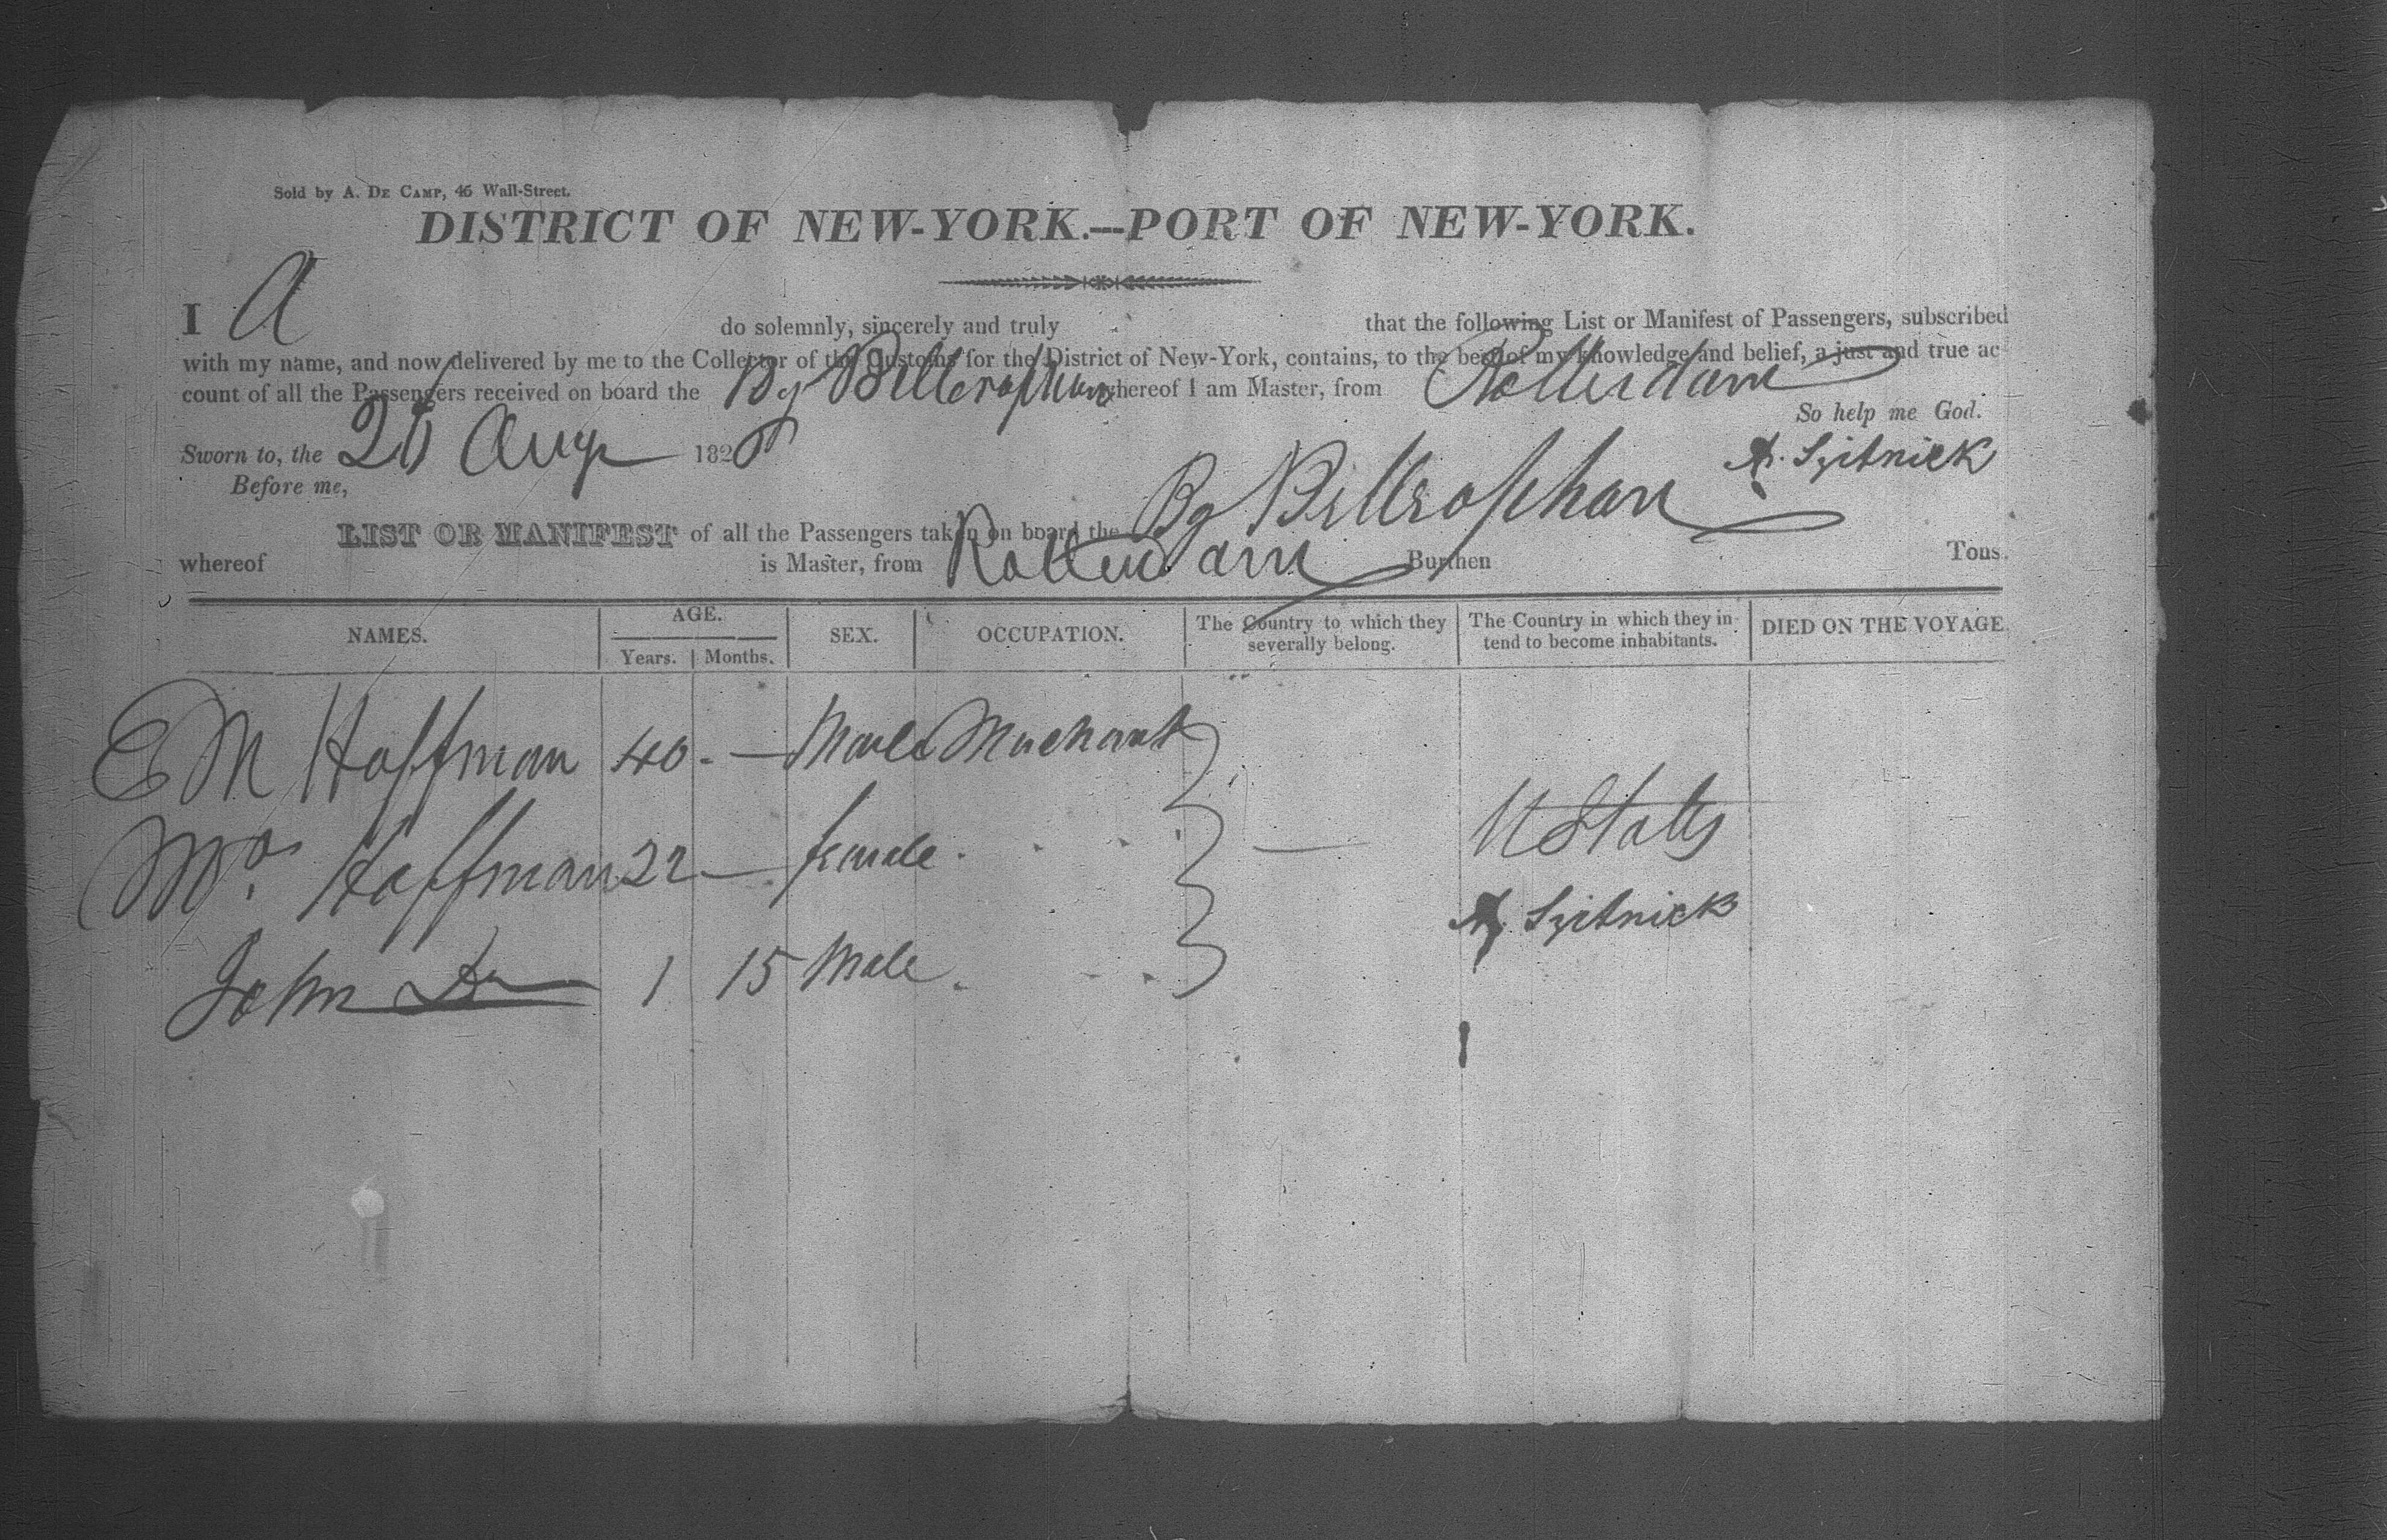 Sold by A. DE CAMP, 46 Wall-Street.
DISTRICT OF NEW-YORK.—PORT OF NEW-YORK.
I A do solemnly, sincerely and truly that the following List or Manifest of Passengers, subscribed
with my name, and now delivered by me to the Collector of the Customs for the District of New-York, contains, to the best of my knowledge and belief, a just and true ac-
count of all the Passengers received on board the Bg Bellerophan whereof I am Master, from Rotterdam
So help me God.
Sworn to, the Aug 182
Before me,
LIST OR MANIFEST of all the Passengers taken on board the Bg Bellrophan
whereof is Master, from Rotterdam Burthen Tons.
NAMES. AGE. Years. Months. SEX. OCCUPATION. The Country to which they severally belong. The Country in which they intend to become inhabitants. DIED ON THE VOYAGE.
E M Hoffman 40 - — Male Merchant
Mrs Hoffman 22 — female — U States
John Do 1 15 Male